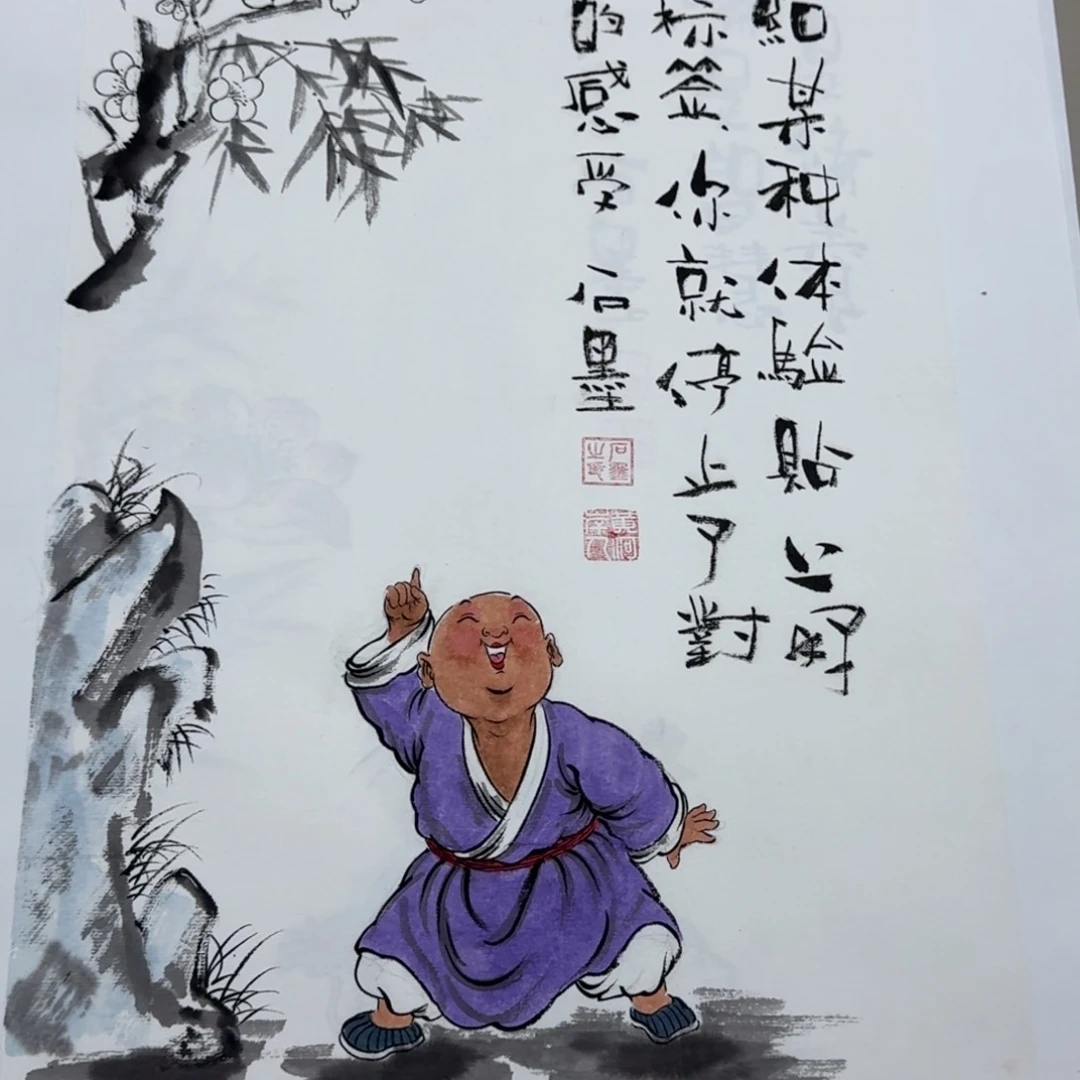 給某种体验貼上
标签、你就停止了對
的感受 石墨